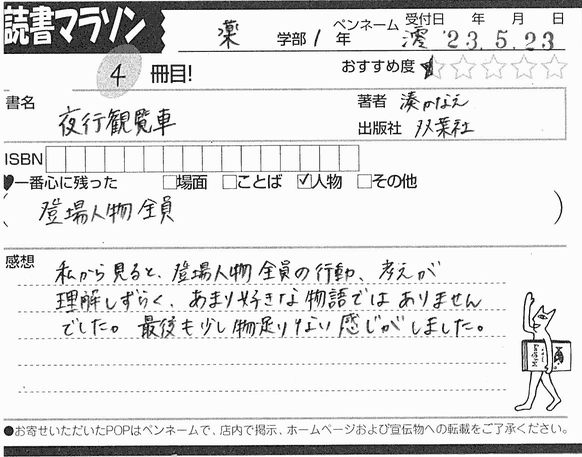 読書マラソン
ペンネーム 受付日 年 月 日
薬 学部 1 年 澪 '23.5.23
4 冊目! おすすめ度 ★☆☆☆☆
書名 夜行観覧車
著者 湊かなえ
出版社 双葉社
ISBN
♥一番心に残った □場面 □ことば ☑人物 □その他
(登場人物全員)
感想
私から見ると、登場人物全員の行動、考えが
理解しずらく、あまり好きな物語ではありません
でした。最後も少し物足りない感じがしました。
●お寄せいただいたPOPはペンネームで、店内で掲示、ホームページおよび宣伝物への転載をご了承ください。